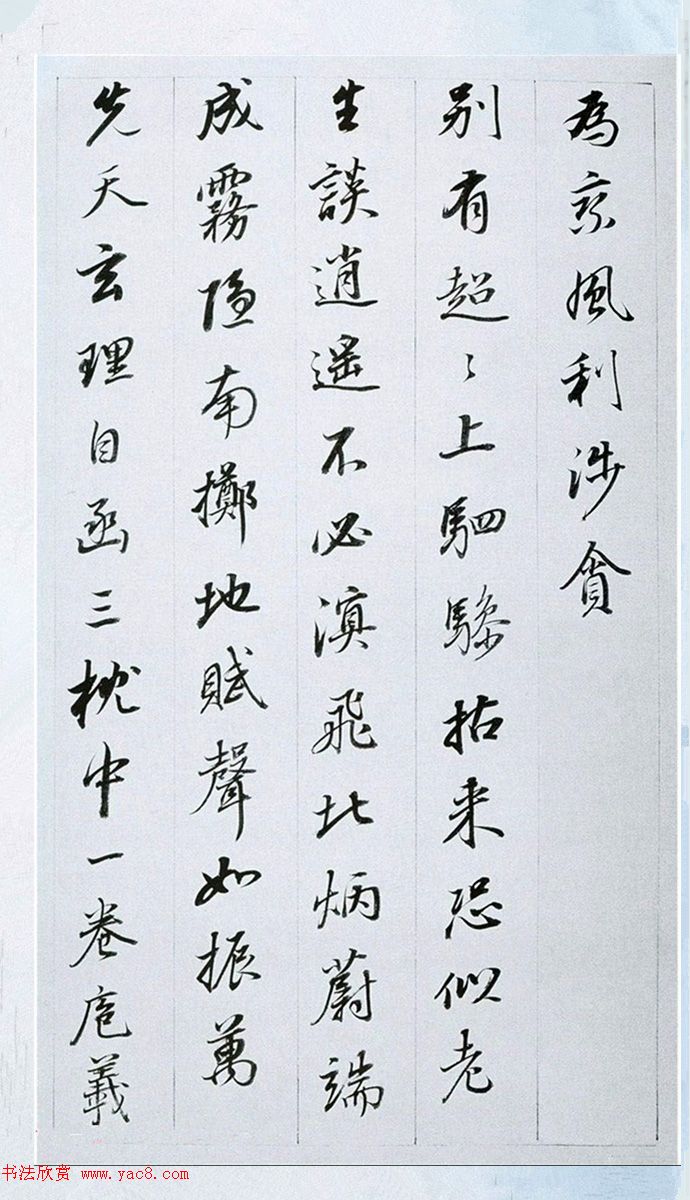 為京風利涉貪
别有超〻上駟驂拈来恐似老
生談逍遥不必溟飛北炳蔚端
成霧隱南擲地賦聲如振萬
先天玄理自函三枕中一卷庖羲
书法欣赏 www.yac8.com